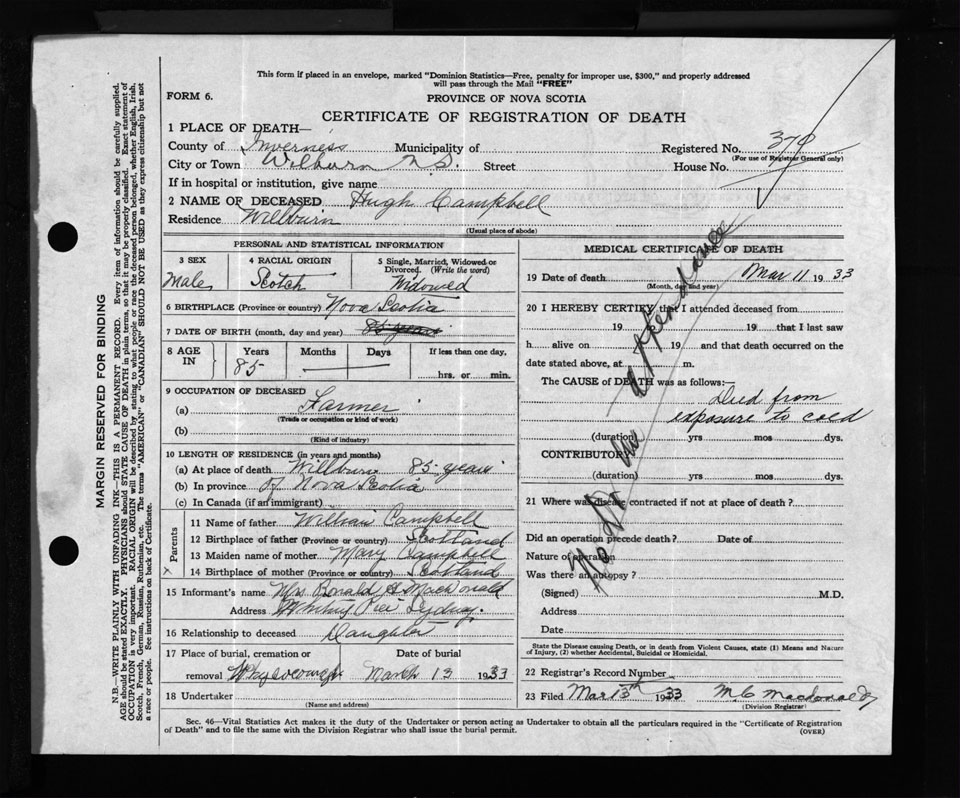 This form if placed in an envelope, marked "Dominion Statistics—Free, penalty for improper use, $300," and properly addressed
will pass through the Mail "FREE"
FORM 6.
PROVINCE OF NOVA SCOTIA
CERTIFICATE OF REGISTRATION OF DEATH
1 PLACE OF DEATH—
County of Inverness Municipality of Registered No. 379
(For use of Registrar General only)
City or Town Wilburn N.S. Street House No.
If in hospital or institution, give name
2 NAME OF DECEASED Hugh Campbell
Residence Willburn
(Usual place of abode)
PERSONAL AND STATISTICAL INFORMATION
3 SEX 4 RACIAL ORIGIN 5 Single, Married, Widowed or
Divorced. (Write the word)
Male Scotch Widowed
6 BIRTHPLACE (Province or country) Nova Scotia
7 DATE OF BIRTH (month, day and year) 85 years
8 AGE IN Years Months Days If less than one day,
85 hrs. or min.
9 OCCUPATION OF DECEASED
(a) Farmer
(Trade or occupation or kind of work)
(b)
(Kind of industry)
10 LENGTH OF RESIDENCE (in years and months)
(a) At place of death Willburn 85 years
(b) In province of Nova Scotia
(c) In Canada (if an immigrant)
Parents
11 Name of father William Campbell
12 Birthplace of father (Province or country) Scotland
13 Maiden name of mother Mary Campbell
x 14 Birthplace of mother (Province or country) Scotland
15 Informant's name Mrs Ronald A MacDonald
Address Whitney Pier Sydney
16 Relationship to deceased Daughter
17 Place of burial, cremation or Date of burial
removal Whycocomagh March 13 1933
18 Undertaker
(Name and address)
MEDICAL CERTIFICATE OF DEATH
19 Date of death Mar 11 1933
(Month, day and year)
20 I HEREBY CERTIFY that I attended deceased from
19 19 that I last saw
h alive on 19 and that death occurred on the
date stated above, at m.
The CAUSE of DEATH was as follows:—
Died from
exposure to cold
(duration) yrs mos dys.
CONTRIBUTORY
(duration) yrs mos dys.
No Dr in attendance
21 Where was disease contracted if not at place of death?
Did an operation precede death? Date of
Nature of operation
Was there an autopsy?
(Signed) M.D.
Address
Date
State the Disease causing Death, or in death from Violent Causes, state (1) Means and Nature
of Injury, (2) whether Accidental, Suicidal or Homicidal.
22 Registrar's Record Number
23 Filed Mar 13th 1933 M. C. MacDonald
(Division Registrar)
Sec. 46—Vital Statistics Act makes it the duty of the Undertaker or person acting as Undertaker to obtain all the particulars required in the "Certificate of Registration
of Death" and to file the same with the Division Registrar who shall issue the burial permit. (OVER)
MARGIN RESERVED FOR BINDING
N.B.—WRITE PLAINLY WITH UNFADING INK—THIS IS A PERMANENT RECORD. Every item of information should be carefully supplied.
AGE should be stated EXACTLY. PHYSICIANS should STATE CAUSE OF DEATH in plain terms, so that it may be properly classified. Exact statement of
OCCUPATION is very important. RACIAL ORIGIN will be described by stating to what people or race the deceased person belonged, whether English, Irish,
Scotch, French, German, Russian, Ruthenian, etc. The terms "AMERICAN" or "CANADIAN" SHOULD NOT BE USED as they express citizenship but not
a race or people. See instructions on back of Certificate.